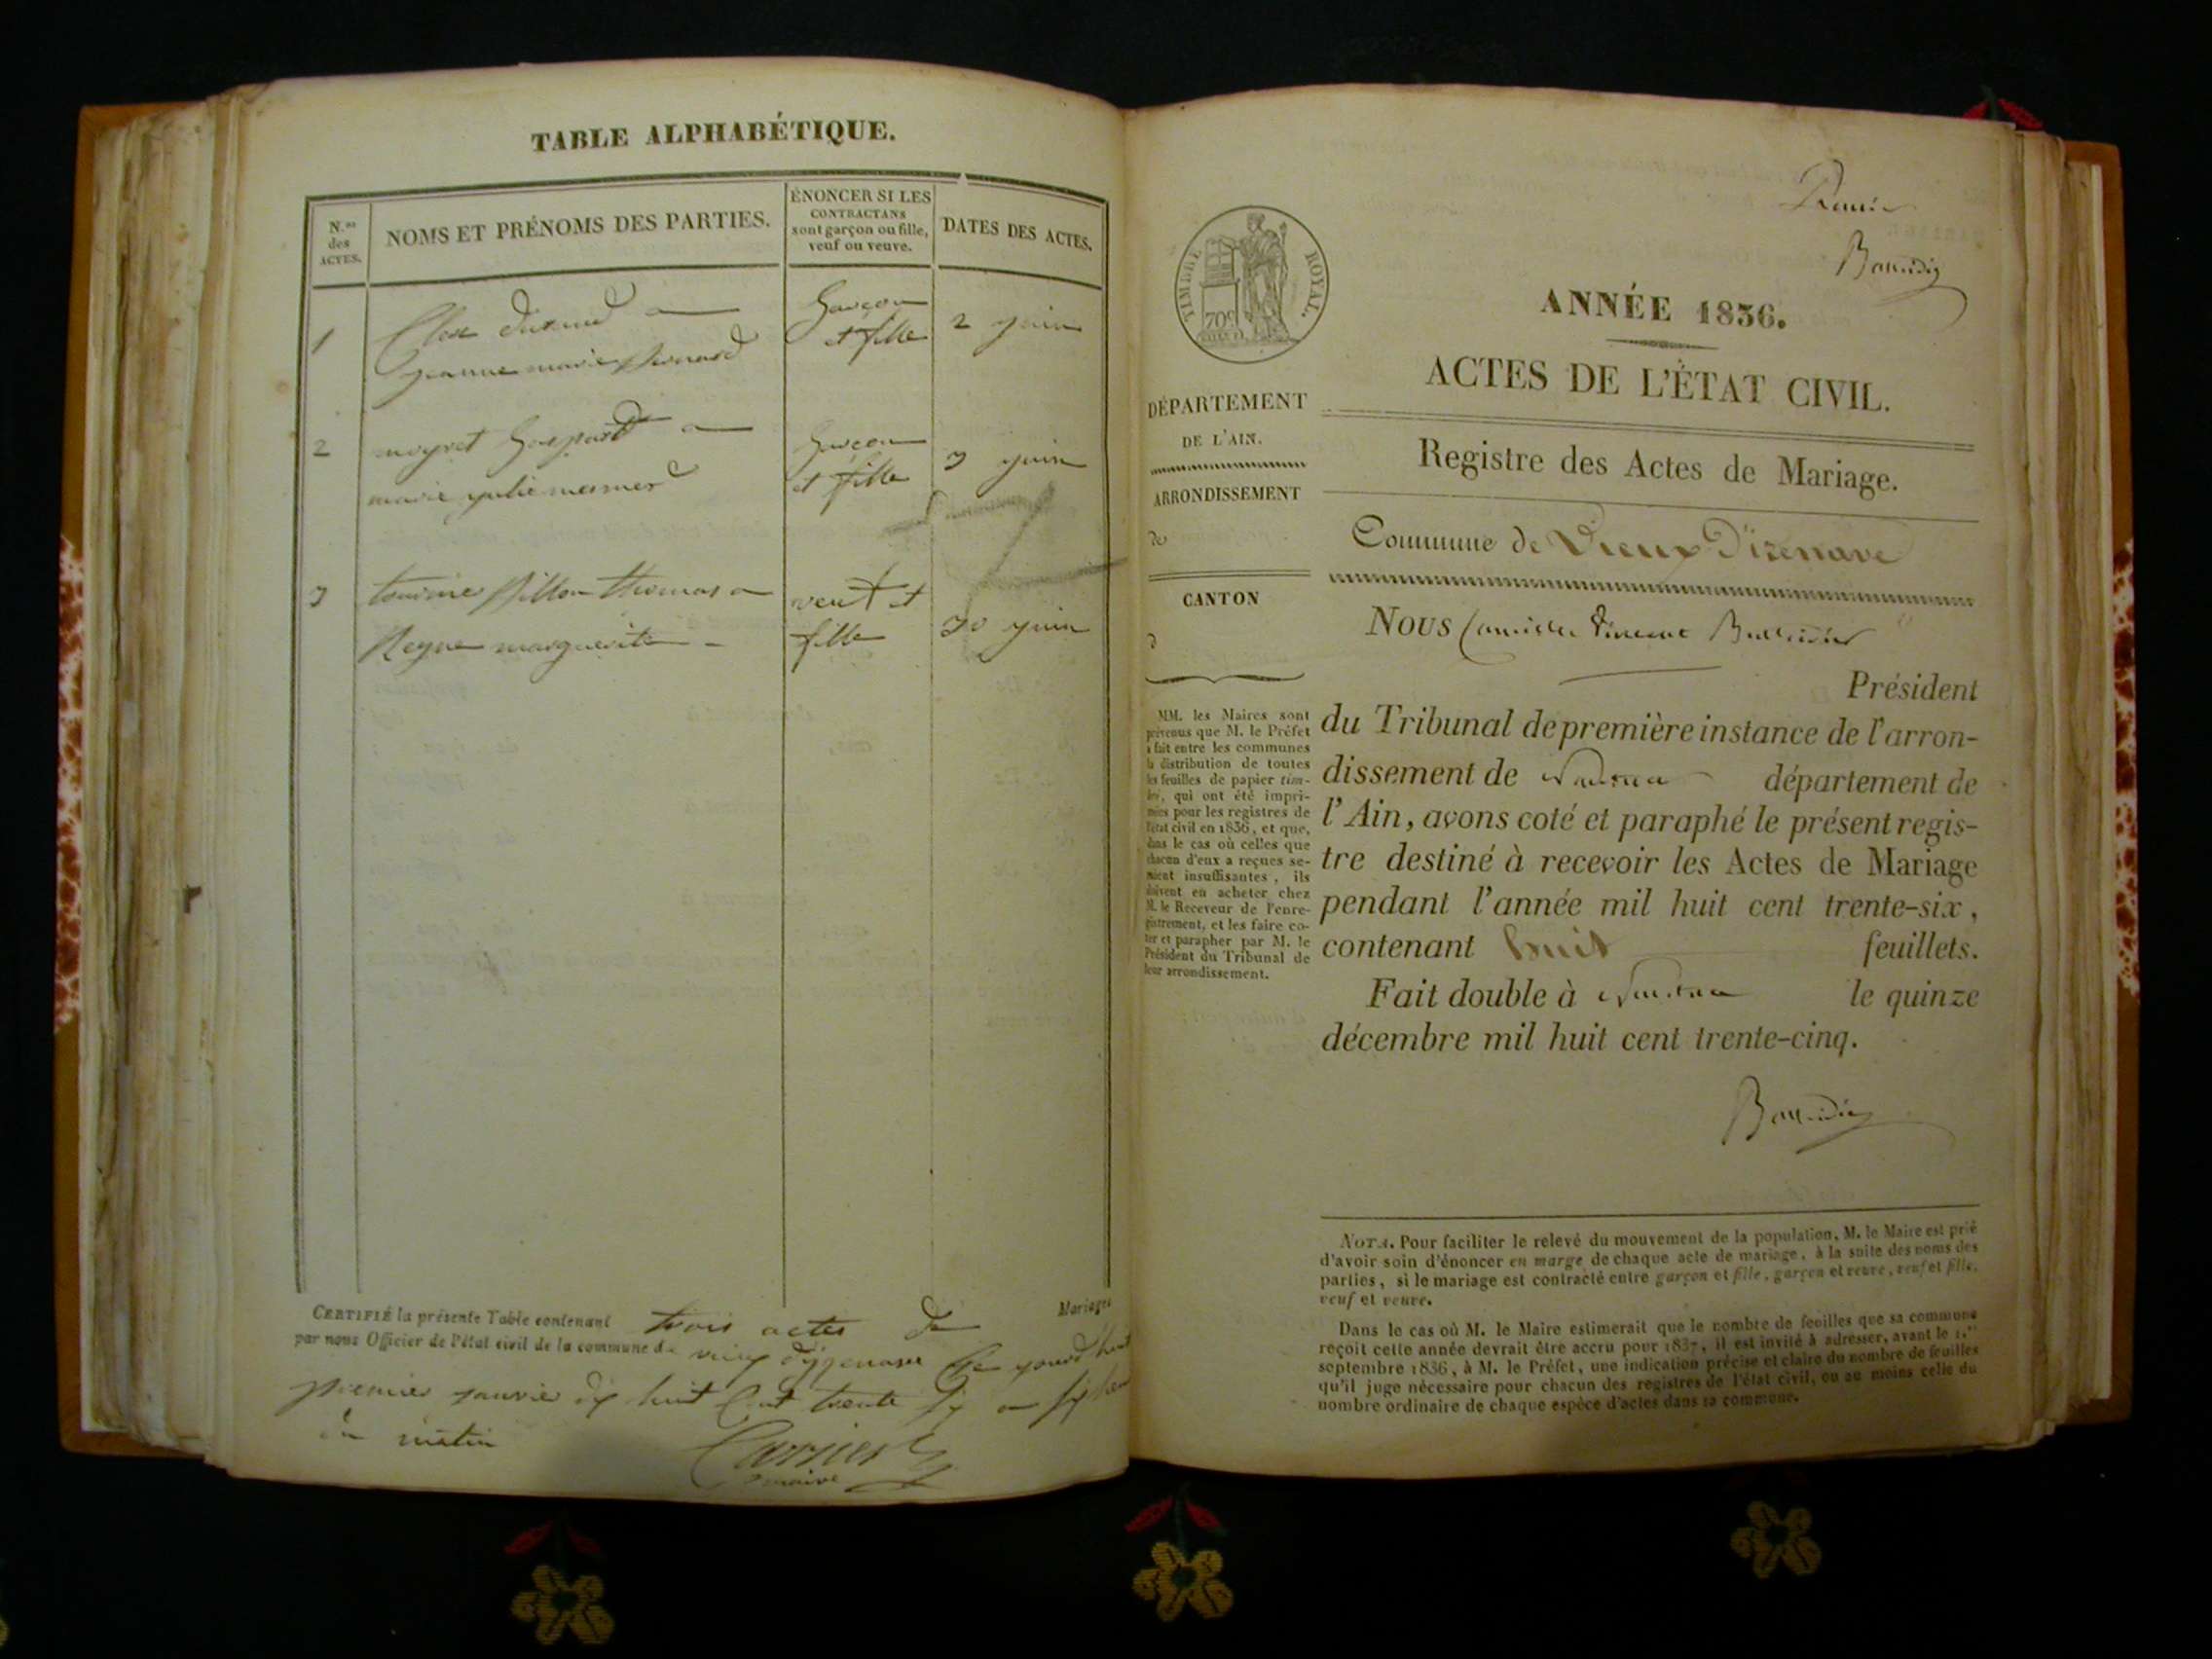 TABLE ALPHABÉTIQUE.
N.os
des
ACTES.
NOMS ET PRÉNOMS DES PARTIES.
ÉNONCER SI LES
CONTRACTANS
sont garçon ou fille,
veuf ou veuve.
DATES DES ACTES.
1
jeanne marie
Garçon
et fille
2 juin
2
moyret Gaspard
marie julie
Garçon
et fille
3 juin
3
thomas
marguerite
veuf et
fille
30 juin
CERTIFIÉ la présente Table contenant trois actes de Mariages
par nous Officier de l'état civil de la commune de vieux
premier janvier dix huit cent trente six
du matin
Carrier
maire
TIMBRE ROYAL.
70c
DÉPARTEMENT
DE L'AIN.
ARRONDISSEMENT
de
CANTON
d
MM. les Maires sont
prévenus que M. le Préfet
a fait entre les communes
la distribution de toutes
les feuilles de papier tim-
bré, qui ont été impri-
mées pour les registres de
l'état civil en 1836, et que,
dans le cas où celles que
chacun d'eux a reçues se-
raient insuffisantes, ils
doivent en acheter chez
M. le Receveur de l'enre-
gistrement, et les faire co-
ter et parapher par M. le
Président du Tribunal de
leur arrondissement.
ANNÉE 1836.
ACTES DE L'ÉTAT CIVIL.
Registre des Actes de Mariage.
Commune de Vieux D'izenave
Nous Vincent
Président
du Tribunal de première instance de l'arron-
dissement de Nantua département de
l'Ain, avons coté et paraphé le présent regis-
tre destiné à recevoir les Actes de Mariage
pendant l'année mil huit cent trente-six,
contenant huit feuillets.
Fait double à Nantua le quinze
décembre mil huit cent trente-cinq.
NOTA. Pour faciliter le relevé du mouvement de la population, M. le Maire est prié
d'avoir soin d'énoncer en marge de chaque acte de mariage, à la suite des noms des
parties, si le mariage est contracté entre garçon et fille, garçon et veuve, veuf et fille,
veuf et veuve.
Dans le cas où M. le Maire estimerait que le nombre de feuilles que sa commune
reçoit cette année devrait être accru pour 1837, il est invité à adresser, avant le 1.er
septembre 1836, à M. le Préfet, une indication précise et claire du nombre de feuilles
qu'il juge nécessaire pour chacun des registres de l'état civil, ou au moins celle du
nombre ordinaire de chaque espèce d'actes dans sa commune.